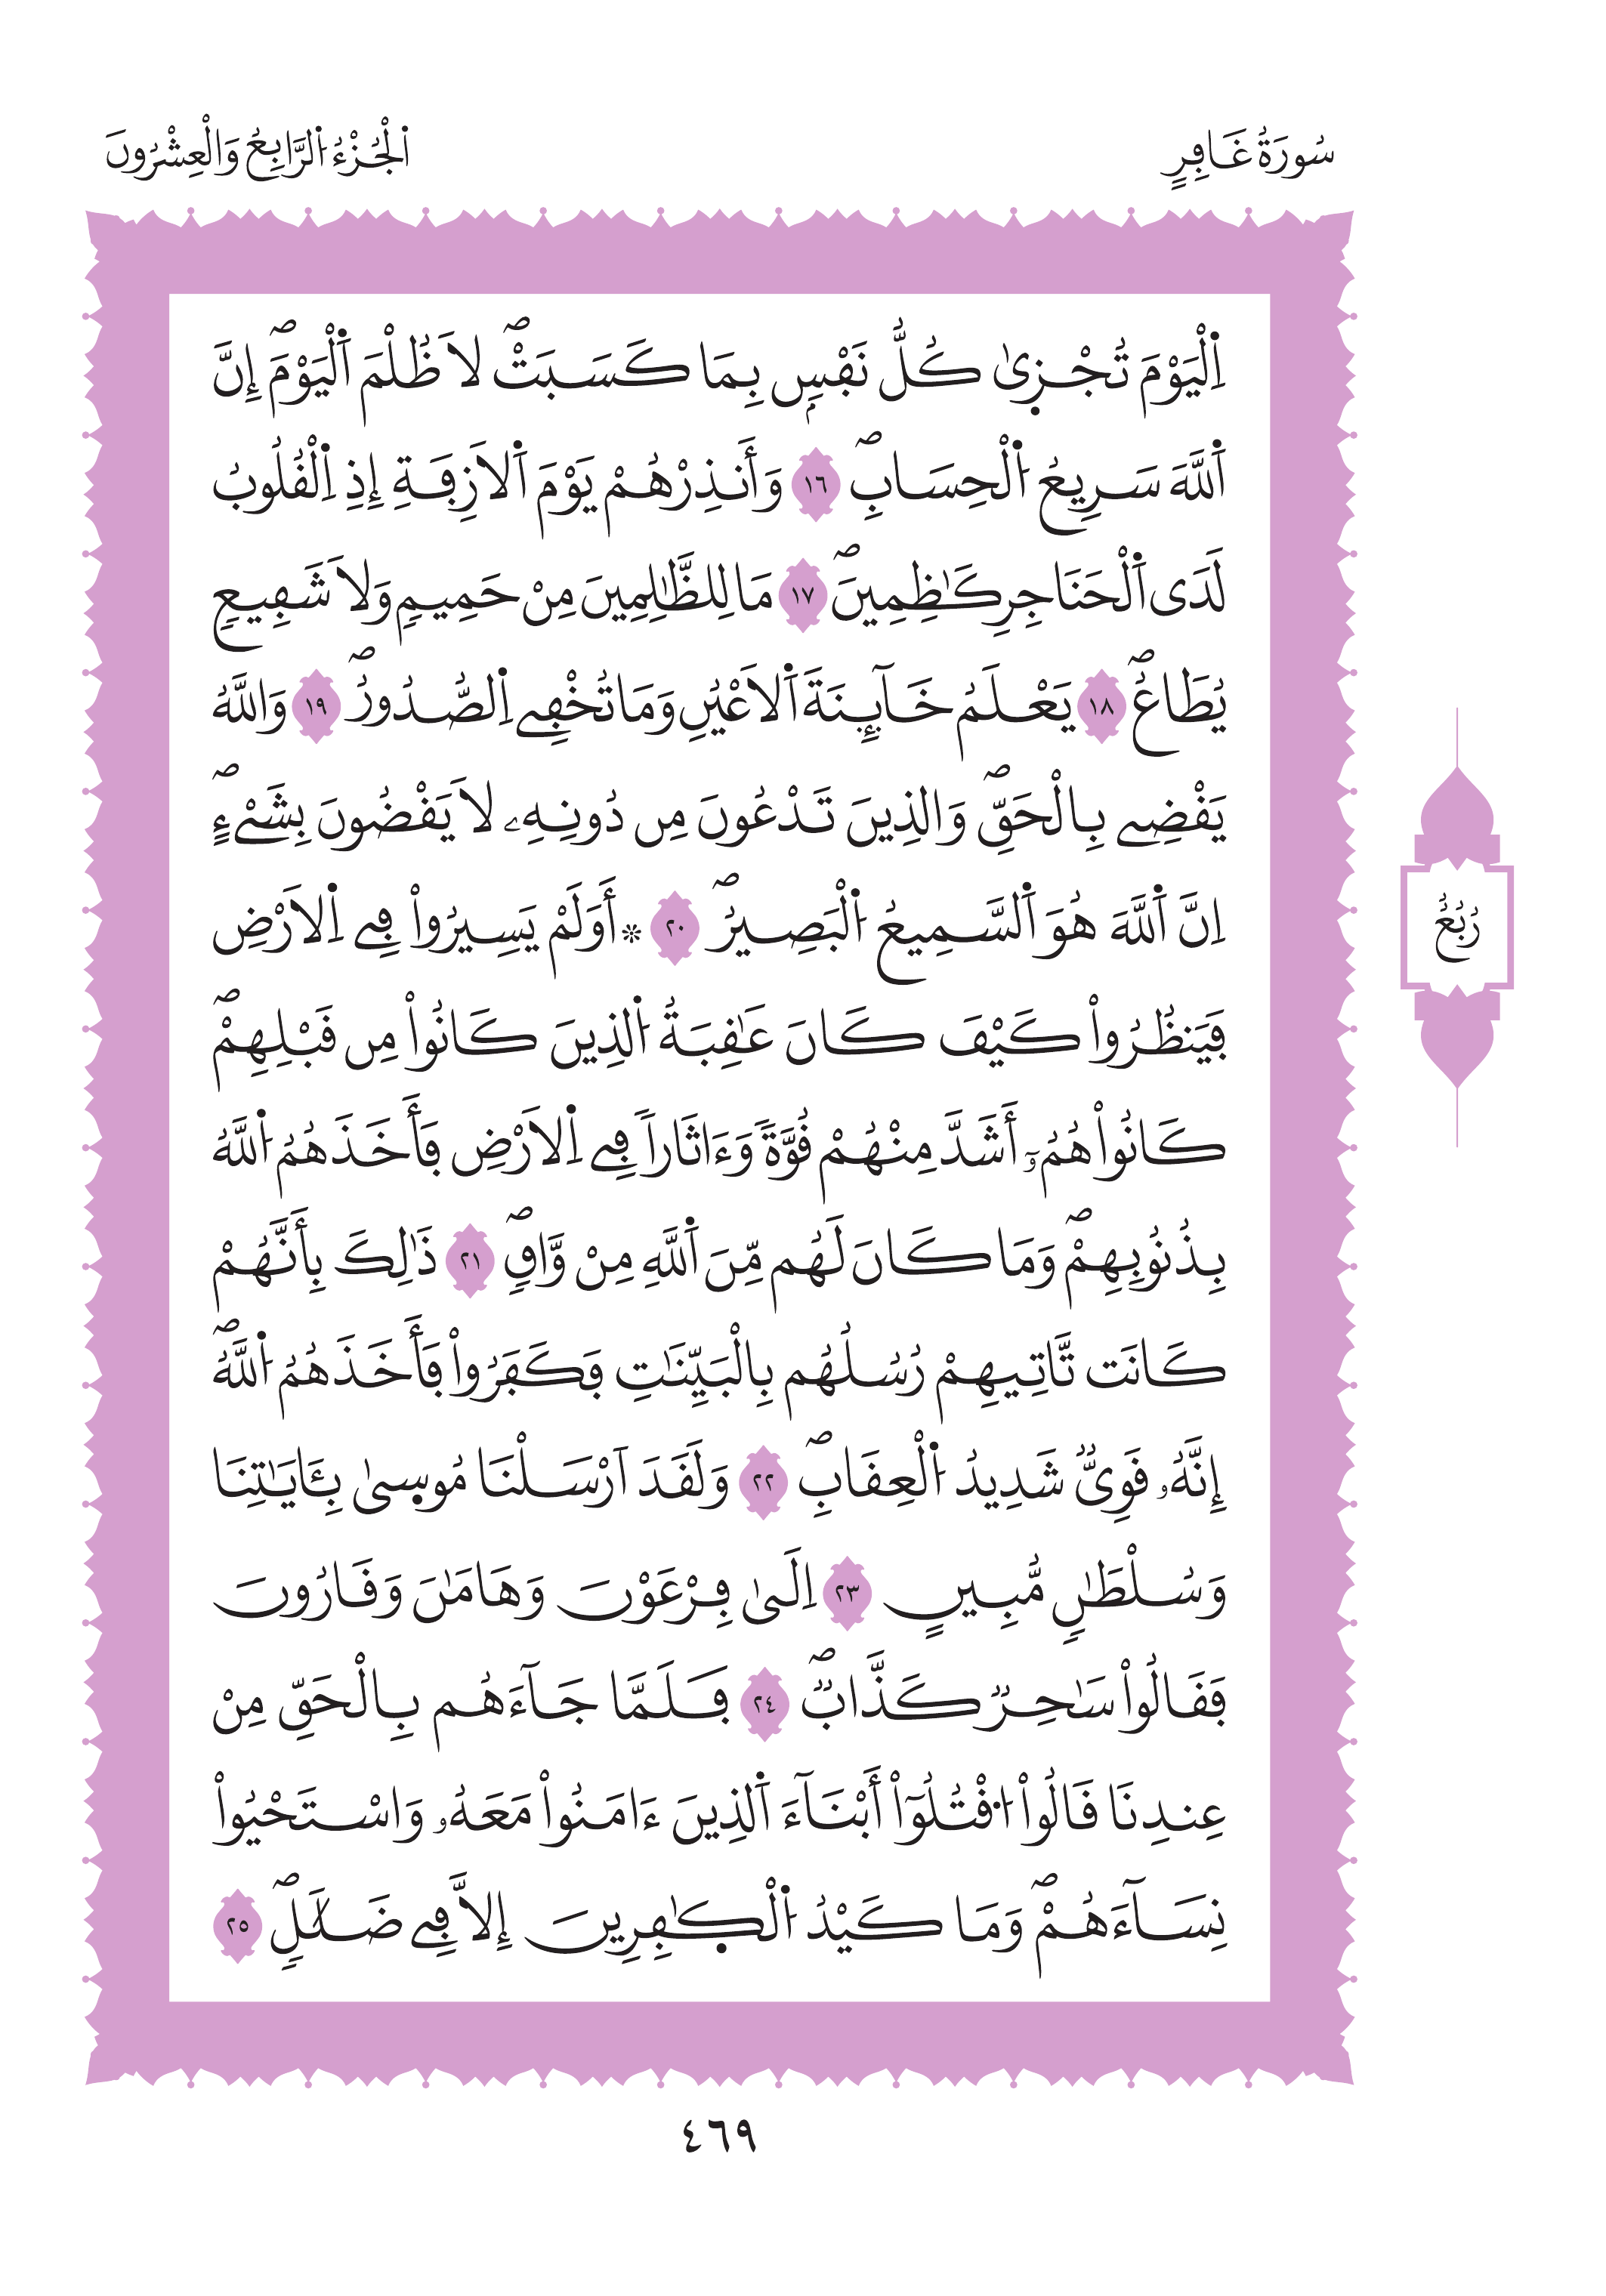 سُورَةُ غَافِرٍ
اَلْجُزْءُ اُلرَّابِعُ وَالْعِشْرُونَ
اِ۬لْيَوْمَ تُجْز۪يٰ كُلُّ نَفْسِۢ بِمَا كَسَبَتْۖ لَا ظُلْمَ اَ۬لْيَوْمَۖ إِنَّ
اَ۬للَّهَ سَرِيعُ اُ۬لْحِسَابِۖ ١٦ وَأَنذِرْهُمْ يَوْمَ اَ۬لَازِفَةِ إِذِ اِ۬لْقُلُوبُ
لَدَى اَ۬لْحَنَاجِرِ كَٰظِمِينَۖ ١٧ مَا لِلظَّٰلِمِينَ مِنْ حَمِيمٖ وَلَا شَفِيعٖ
يُطَاعُۖ ١٨ يَعْلَمُ خَآئِنَةَ اَ۬لَاعْيُنِ وَمَا تُخْفِے اِ۬لصُّدُورُۖ ١٩ وَاللَّهُ
يَقْضِے بِالْحَقِّۖ وَالذِينَ تَدْعُونَ مِن دُونِهِۦ لَا يَقْضُونَ بِشَےْءٍۖ
اِنَّ اَ۬للَّهَ هُوَ اَ۬لسَّمِيعُ اُ۬لْبَصِيرُۖ ٢٠ ۞ أَوَلَمْ يَسِيرُواْ فِے اِ۬لَارْضِ
فَيَنظُرُواْ كَيْفَ كَانَ عَٰقِبَةُ اُ۬لذِينَ كَانُواْ مِن قَبْلِهِمْۖ
كَانُواْ هُمُۥٓ أَشَدَّ مِنْهُمْ قُوَّةٗ وَءَاثَاراٗ فِے اِ۬لَارْضِ فَأَخَذَهُمُ اُ۬للَّهُ
بِذُنُوبِهِمْۖ وَمَا كَانَ لَهُم مِّنَ اَ۬للَّهِ مِنْ وَّاقٖۖ ٢١ ذَٰلِكَ بِأَنَّهُمْ
كَانَت تَّاتِيهِمْ رُسُلُهُم بِالْبَيِّنَٰتِ فَكَفَرُواْ فَأَخَذَهُمُ اُ۬للَّهُۖ
إِنَّهُۥ قَوِيّٞ شَدِيدُ اُ۬لْعِقَابِۖ ٢٢ وَلَقَدَ اَرْسَلْنَا مُوس۪يٰ بِـَٔايَٰتِنَا
وَسُلْطَٰنٖ مُّبِينٍ ٢٣ اِلَىٰ فِرْعَوْنَ وَهَامَٰنَ وَقَارُونَ
فَقَالُواْ سَٰحِرٞ كَذَّابٞۖ ٢٤ فَلَمَّا جَآءَهُم بِالْحَقِّ مِنْ
عِندِنَا قَالُواْ اُ۟قْتُلُوٓاْ أَبْنَآءَ اَ۬لذِينَ ءَامَنُواْ مَعَهُۥ وَاسْتَحْيُواْ
نِسَآءَهُمْۖ وَمَا كَيْدُ اُ۬لْكٰ۪فِرِينَ إِلَّا فِے ضَلَٰلٖۖ ٢٥
رُبُعُ
٤٦٩